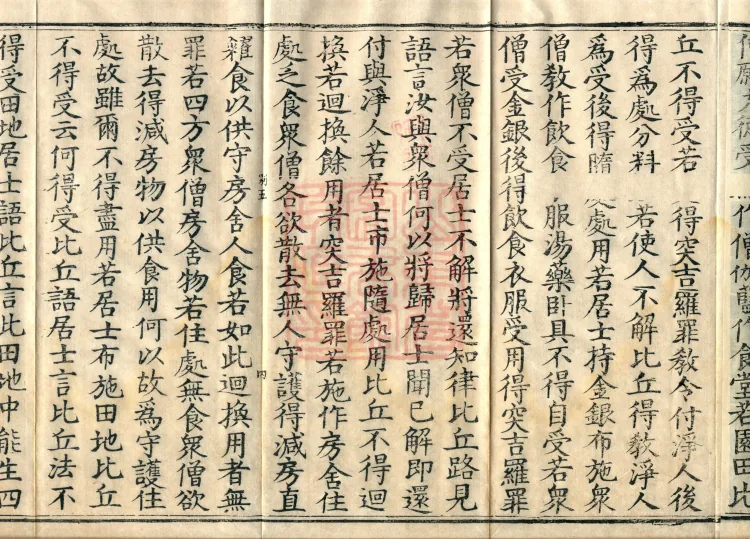 丘不得受若得突吉羅罪教令付淨人後
得為處分料若使人不解比丘得教淨人
為受後得隨處用若居士持金銀布施衆
僧教作飲食服湯藥卧具不得自受若衆
僧受金銀後得飲食衣服受用得突吉羅罪
若衆僧不受居士不解將還知律比丘路見
語言汝與衆僧何以將歸居士聞已解即還
付與淨人若居士布施隨處用比丘不得迴
換若迴換餘用者突吉羅罪若施作房舍住
處乏食衆僧各欲散去無人守護得減房直
糴食以供守房舍人食若如此迴換用者無
罪若四方衆僧房舍物若住處無食衆僧欲
散去得減房物以供食用何以故為守護住
處故雖爾不得盡用若居士布施田地比丘
不得受云何得受比丘語居士言比丘法不
得受田地居士語比丘言此田地中能生四